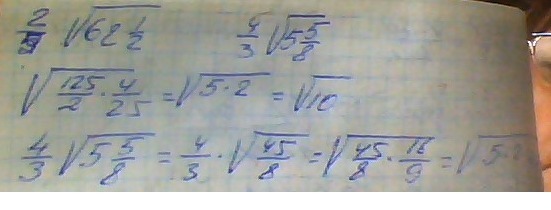 2/5 √(62 1/2) 4/3 √(5 5/8)
√(125/2 · 4/25) = √(5·2) = √10
4/3 √(5 5/8) = 4/3 · √(45/8) = √(45/8 · 16/9) = √(5·2